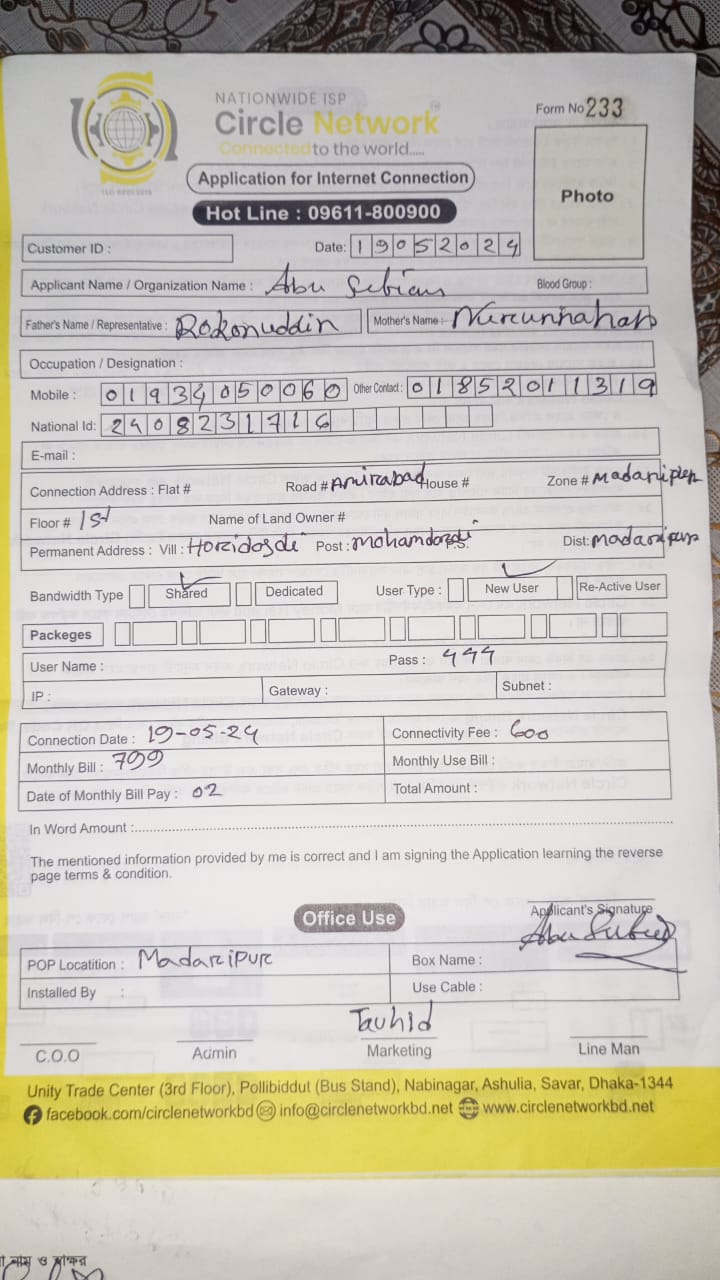 NATIONWIDE ISP
Circle Network
Connected to the world.....
Form No 233
Application for Internet Connection
Photo
Hot Line : 09611-800900
Customer ID : Date: 19052024
Applicant Name / Organization Name : Abu Blood Group :
Father's Name / Representative : Rokonuddin Mother's Name :- Nurunnahar
Occupation / Designation :
Mobile : 01934050060 Other Contact : 01852011319
National Id: 2408231716
E-mail :
Connection Address : Flat # Road # Amirabad House # Zone # Madaripur
Floor # 1st Name of Land Owner #
Permanent Address : Vill : Post : P.S. Dist: madaripur
Bandwidth Type Shared Dedicated User Type : New User Re-Active User
Packeges
User Name : Pass : 444
IP : Gateway : Subnet :
Connection Date : 19-05-24 Connectivity Fee : 600
Monthly Bill : 799 Monthly Use Bill :
Date of Monthly Bill Pay : 02 Total Amount :
In Word Amount :
The mentioned information provided by me is correct and I am signing the Application learning the reverse
page terms & condition.
Office Use
Applicant's Signature
POP Locatition : Madaripur Box Name :
Installed By : Use Cable :
Tauhid
C.O.O Admin Marketing Line Man
Unity Trade Center (3rd Floor), Pollibiddut (Bus Stand), Nabinagar, Ashulia, Savar, Dhaka-1344
facebook.com/circlenetworkbd info@circlenetworkbd.net www.circlenetworkbd.net